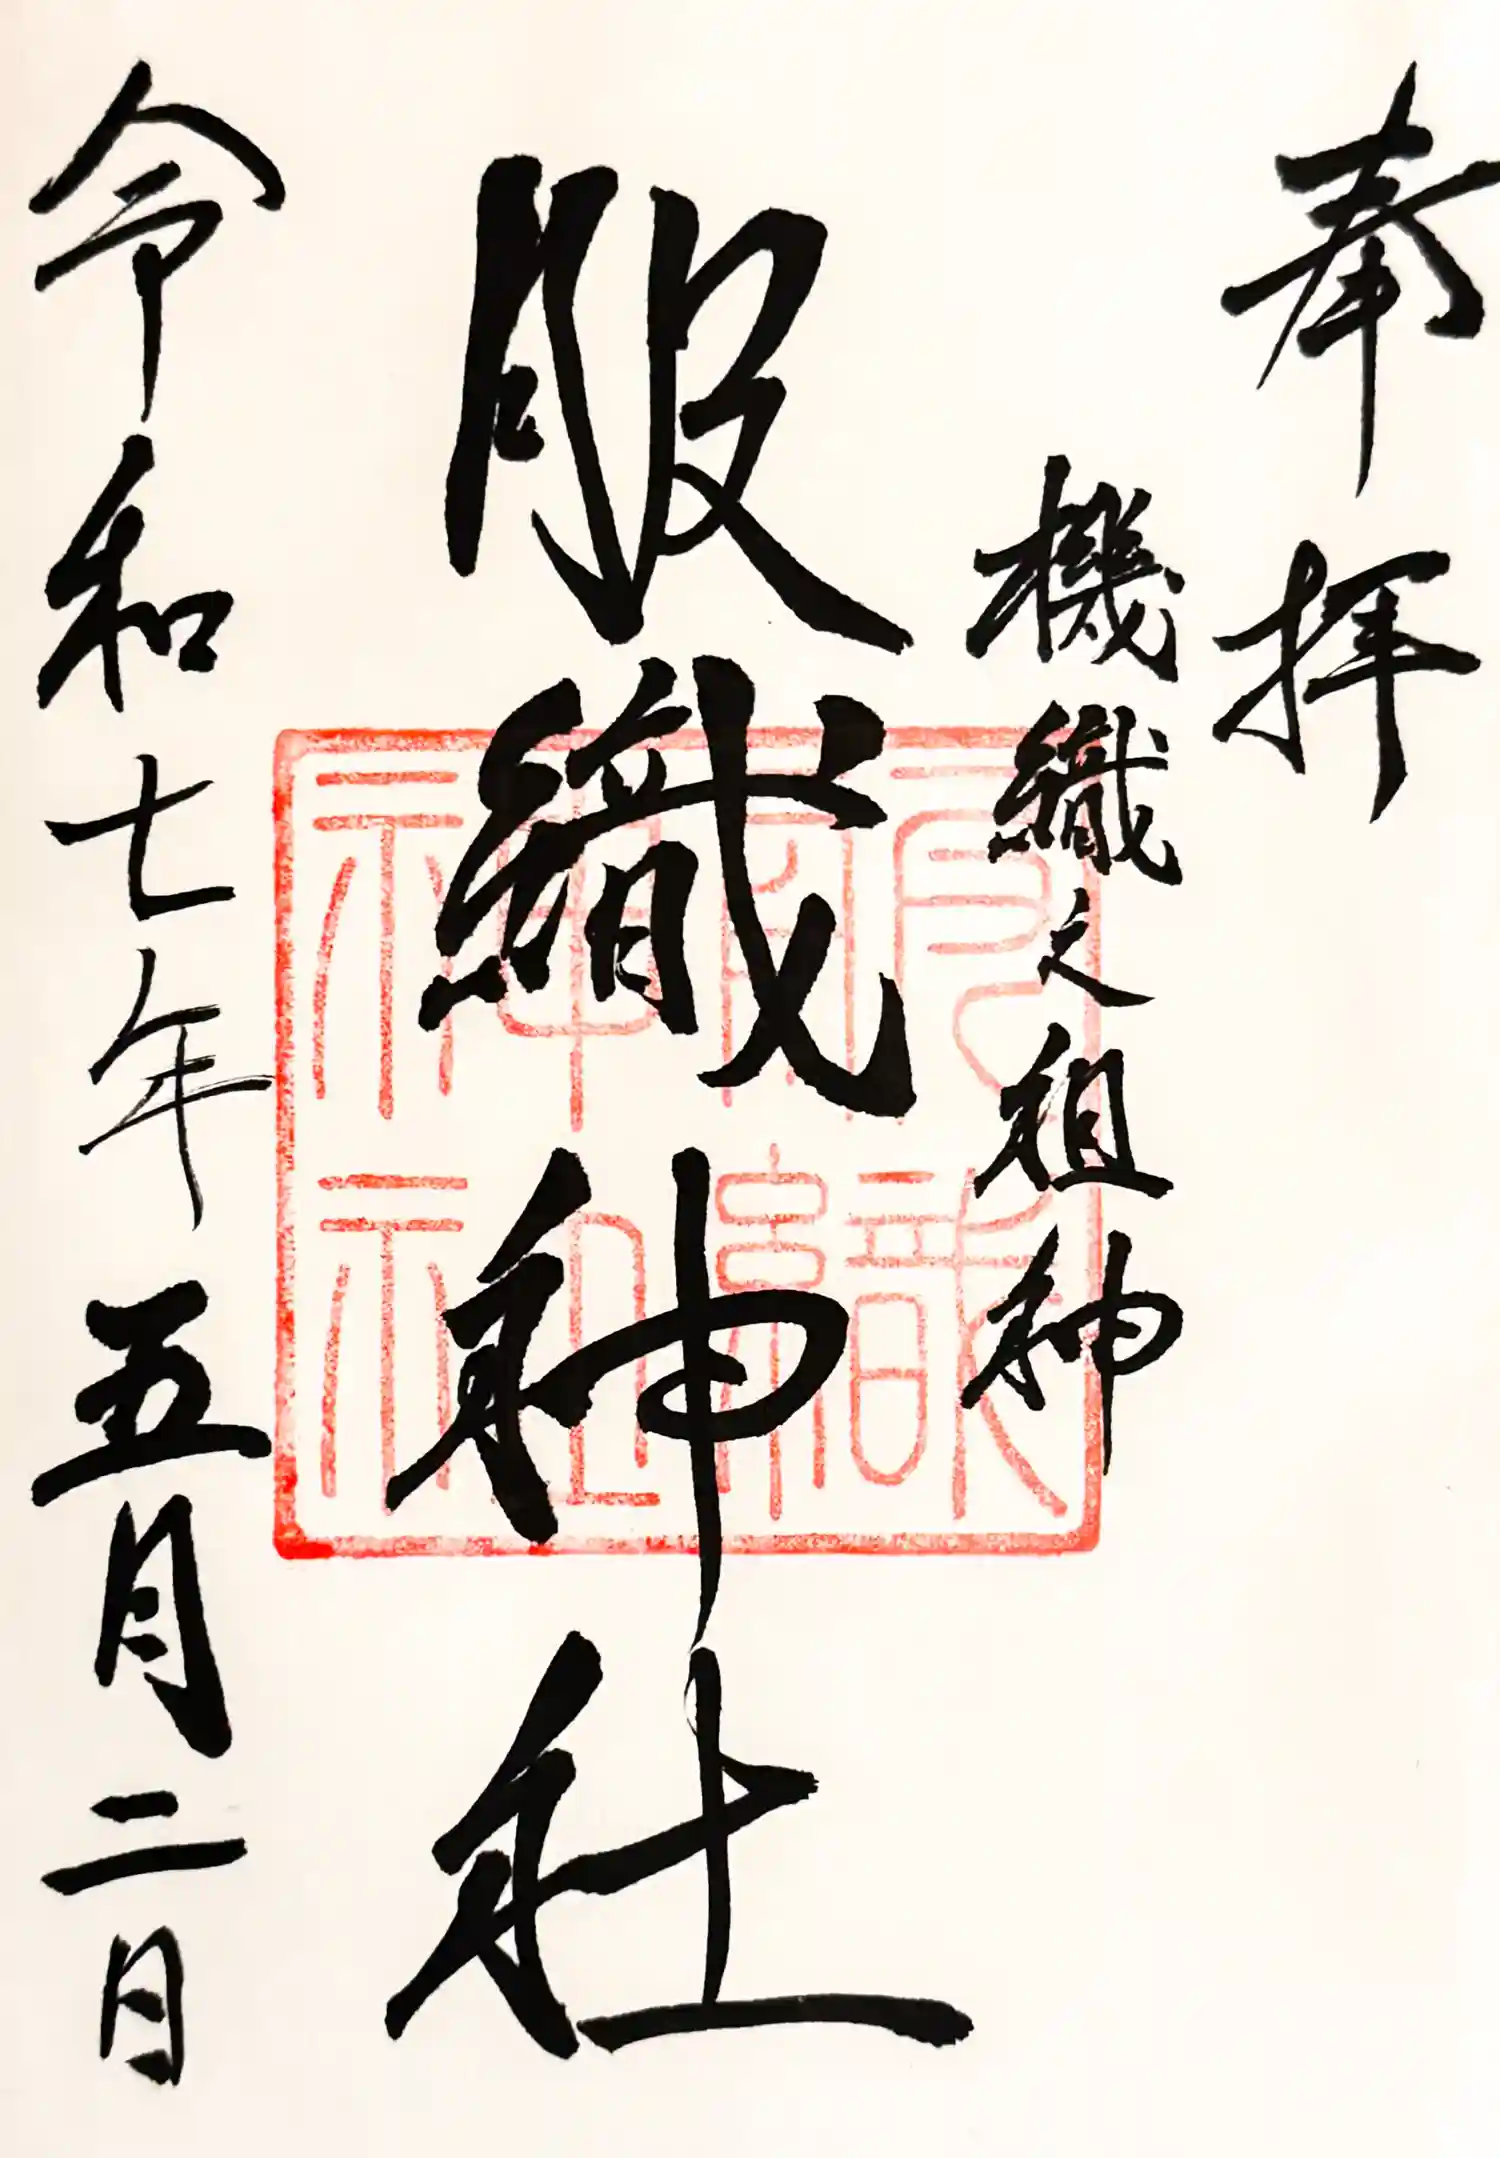 奉拝
機織之祖神
服織神社
服織神社
令和七年五月二日